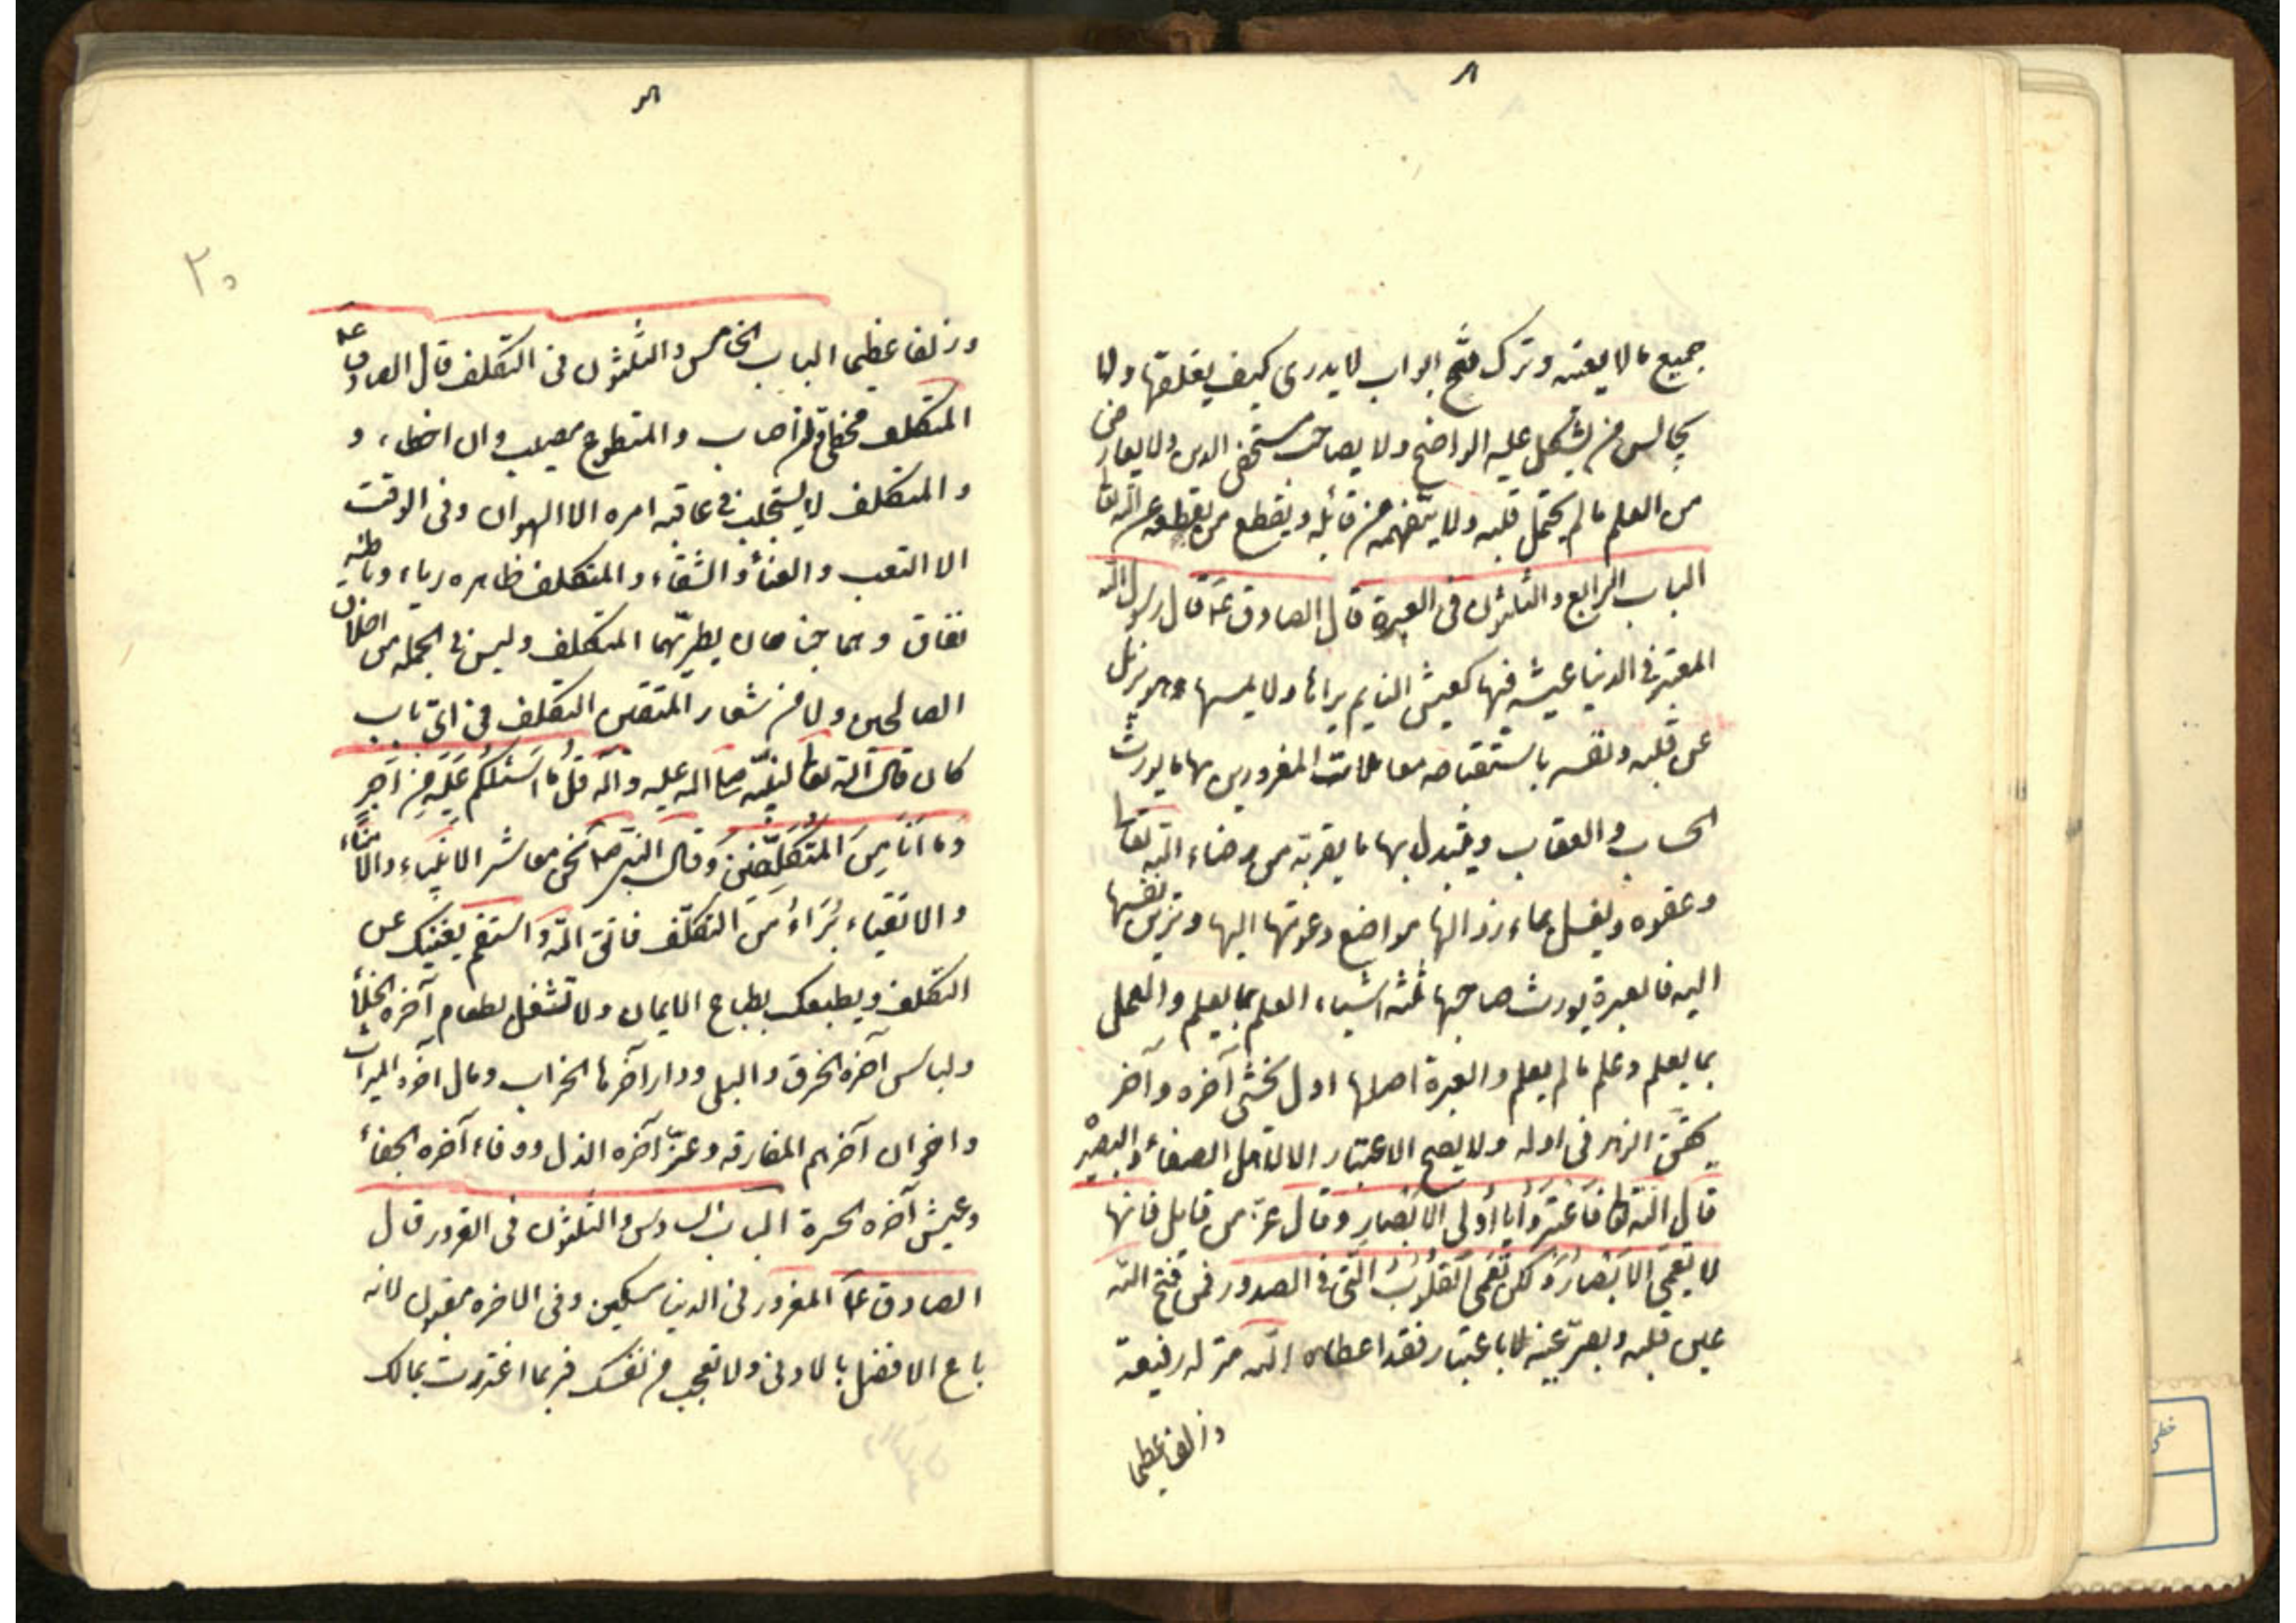 جميع ما لا يعنيه وترك فتح ابواب لا يدرى كيف يغلقها ولا
يجالس من يشكل عليه الواضح ولا يصاحب مستخفى الدين ولا يعارض
من العلم ما لم يحتمل قلبه ولا يتفهمه من قائله ويقطع من يقطعه عن الله تعا
الباب الرابع والثلثون فى العبرة قال الصادق ع قال رسول الله
المعتبر فى الدنيا عيشه فيها كعيش النايم يراها ولا يمسها وهو يزيل
عن قلبه ونفسه باستقباحه معاملات المغرورين بها ما يورث
الحساب والعقاب ويتبدل بها ما يقربه من رضاء الله تعا
وعفوه ويغسل بماء زوالها مواضع دعوتها اليها وتزيين نفسها
اليه فالعبرة يورث صاحبها ثلثة اشياء العلم بما يعلم والعمل
بما يعلم وعلم ما لم يعلم والعبرة اصلها اول يخشى آخره وآخر
يحقق الزهد فى اوله ولا يصح الاعتبار الا لاهل الصفاء والبصيرة
قال الله تعا فَاعْتَبِرُوا يَا أُولِى الأَبْصَارِ وقال عزّ من قايل فانها
لا تَعْمَى الأَبْصَارُ وَلكِن تَعْمَى القُلُوبُ الَّتى فى الصدور فمن فتح الله
عين قلبه وبصر عينه بالاعتبار فقد اعطاه الله منزله رفيعة
وزلفا عظيما
٢٠
وزلفا عظيما الباب الخامس والثلثون فى التكلف قال الصادق ع
المتكلف مخطى وان اصاب والمتطوع مصيب وان اخطاء و
والمتكلف لا يستجلب فى عاقبه امره الا الهوان وفى الوقت
الا التعب والعناء والشقاء والمتكلف ظاهره رياء وباطنه
نفاق وهما جناحان يطير بهما المتكلف وليس فى الجملة من اخلاق
الصالحين ولا من شعار المتقين التكلف فى اىّ باب
كان قال الله تعا لنبيّه صلى الله عليه وآله قُلْ مَا أَسْئَلُكُمْ عَلَيْهِ مِنْ أَجْرٍ
وَمَا أَنَا مِنَ المُتَكَلِّفِينَ وقال النبى ص نحن معاشر الانبياء والامناء
والاتقياء بُرَاءُ مِنَ التكلّف فاتق الله واستقم يغنيك عن
التكلف ويطبعك بطباع الايمان ولا تشغل بطعام آخره الخلأ
ولباس آخره الخرق والبلى ودار آخرها الخراب ومال آخره الميراث
واخوان آخرهم المفارقه وعزّ آخره الذل ووفاء آخره الجفاء
وعيش آخره الحسرة الباب السادس والثلثون فى الغرور قال
الصادق ع المغرور فى الدنيا مسكين وفى الاخره مغبون لانه
باع الافضل بالادنى ولا تعجب من نفسك فربما اغتررت بمالك
خطى